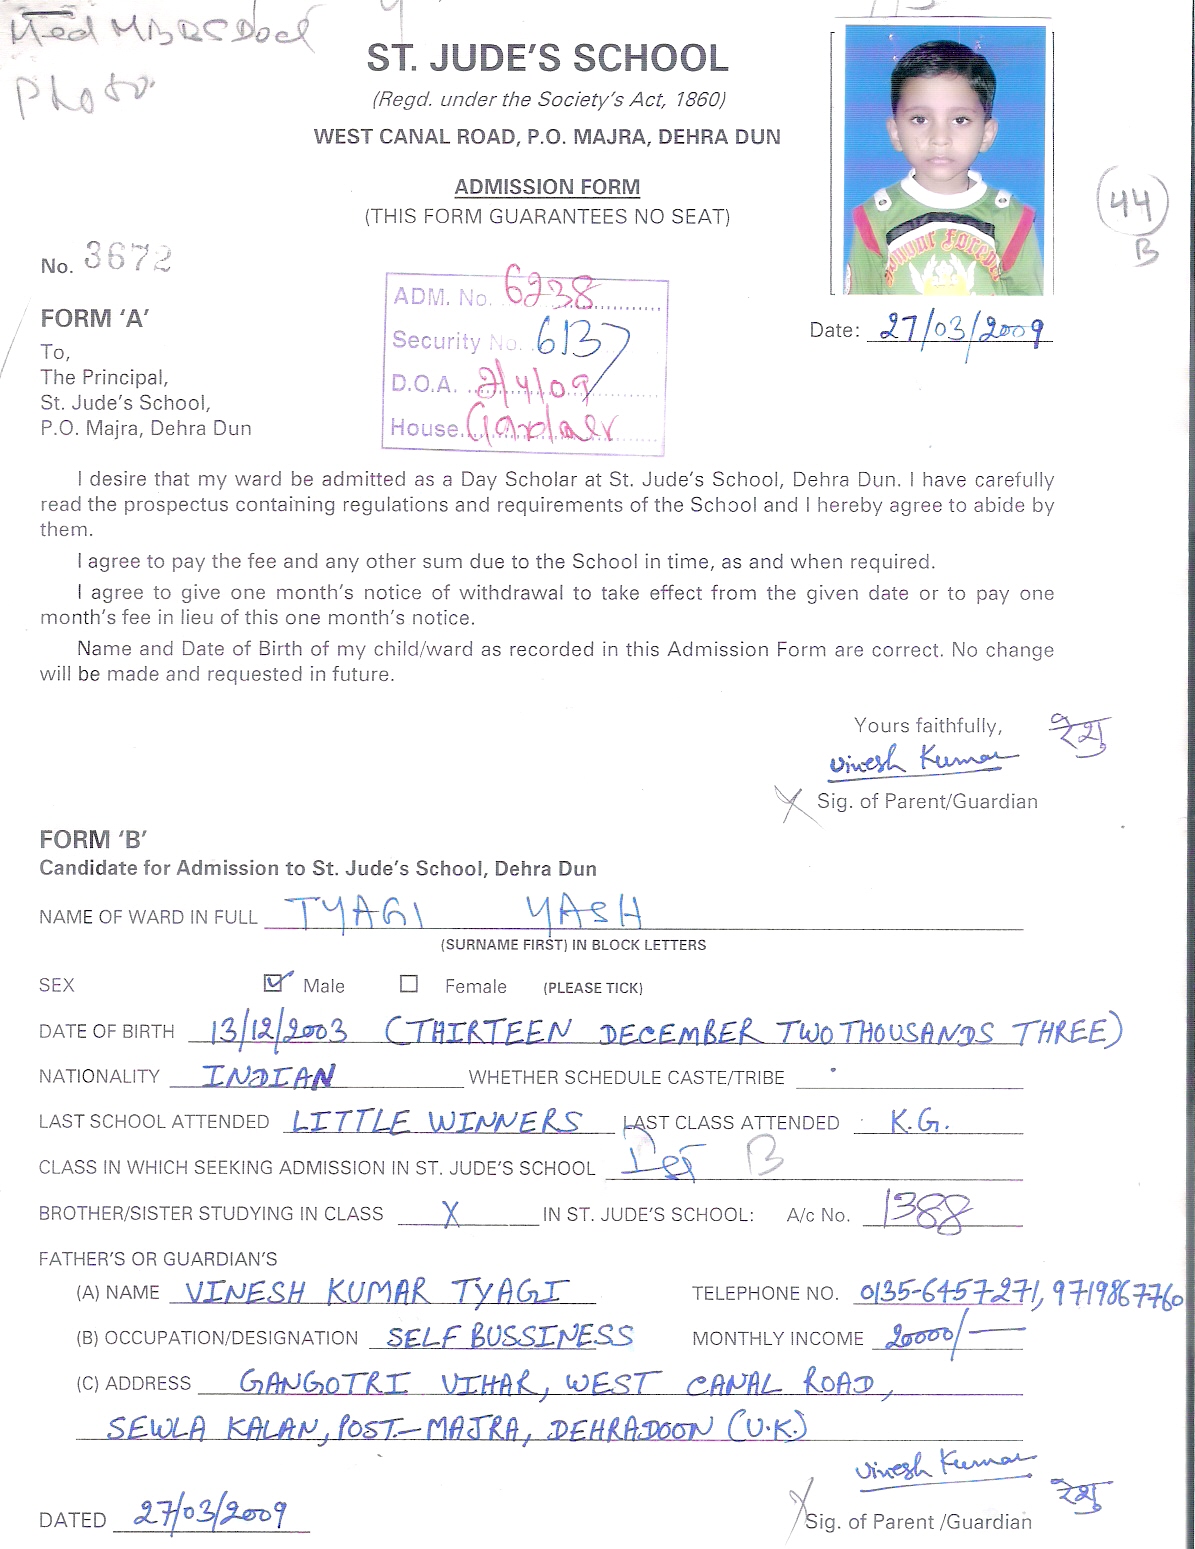 Med MBRSDocl
Photo
ST. JUDE'S SCHOOL
(Regd. under the Society's Act, 1860)
WEST CANAL ROAD, P.O. MAJRA, DEHRA DUN
ADMISSION FORM
(THIS FORM GUARANTEES NO SEAT)
44
B
No. 3672
ADM. No. 6238
Security No. 6137
D.O.A. 2/4/09
House
FORM 'A'
Date: 27/03/2009
To,
The Principal,
St. Jude's School,
P.O. Majra, Dehra Dun
I desire that my ward be admitted as a Day Scholar at St. Jude's School, Dehra Dun. I have carefully
read the prospectus containing regulations and requirements of the School and I hereby agree to abide by
them.
I agree to pay the fee and any other sum due to the School in time, as and when required.
I agree to give one month's notice of withdrawal to take effect from the given date or to pay one
month's fee in lieu of this one month's notice.
Name and Date of Birth of my child/ward as recorded in this Admission Form are correct. No change
will be made and requested in future.
Yours faithfully,
Vinesh Kumar रेशु
X Sig. of Parent/Guardian
FORM 'B'
Candidate for Admission to St. Jude's School, Dehra Dun
NAME OF WARD IN FULL TYAGI YASH
(SURNAME FIRST) IN BLOCK LETTERS
SEX Male Female (PLEASE TICK)
DATE OF BIRTH 13/12/2003 (THIRTEEN DECEMBER TWO THOUSANDS THREE)
NATIONALITY INDIAN WHETHER SCHEDULE CASTE/TRIBE
LAST SCHOOL ATTENDED LITTLE WINNERS LAST CLASS ATTENDED K.G.
CLASS IN WHICH SEEKING ADMISSION IN ST. JUDE'S SCHOOL Ist B
BROTHER/SISTER STUDYING IN CLASS X IN ST. JUDE'S SCHOOL: A/c No. 1388
FATHER'S OR GUARDIAN'S
(A) NAME VINESH KUMAR TYAGI TELEPHONE NO. 0135-6457271, 9719867760
(B) OCCUPATION/DESIGNATION SELF BUSSINESS MONTHLY INCOME 20000/-
(C) ADDRESS GANGOTRI VIHAR, WEST CANAL ROAD,
SEWLA KALAN, POST-MAJRA, DEHRADOON (U.K.)
Vinesh Kumar रेशु
DATED 27/03/2009 X Sig. of Parent /Guardian